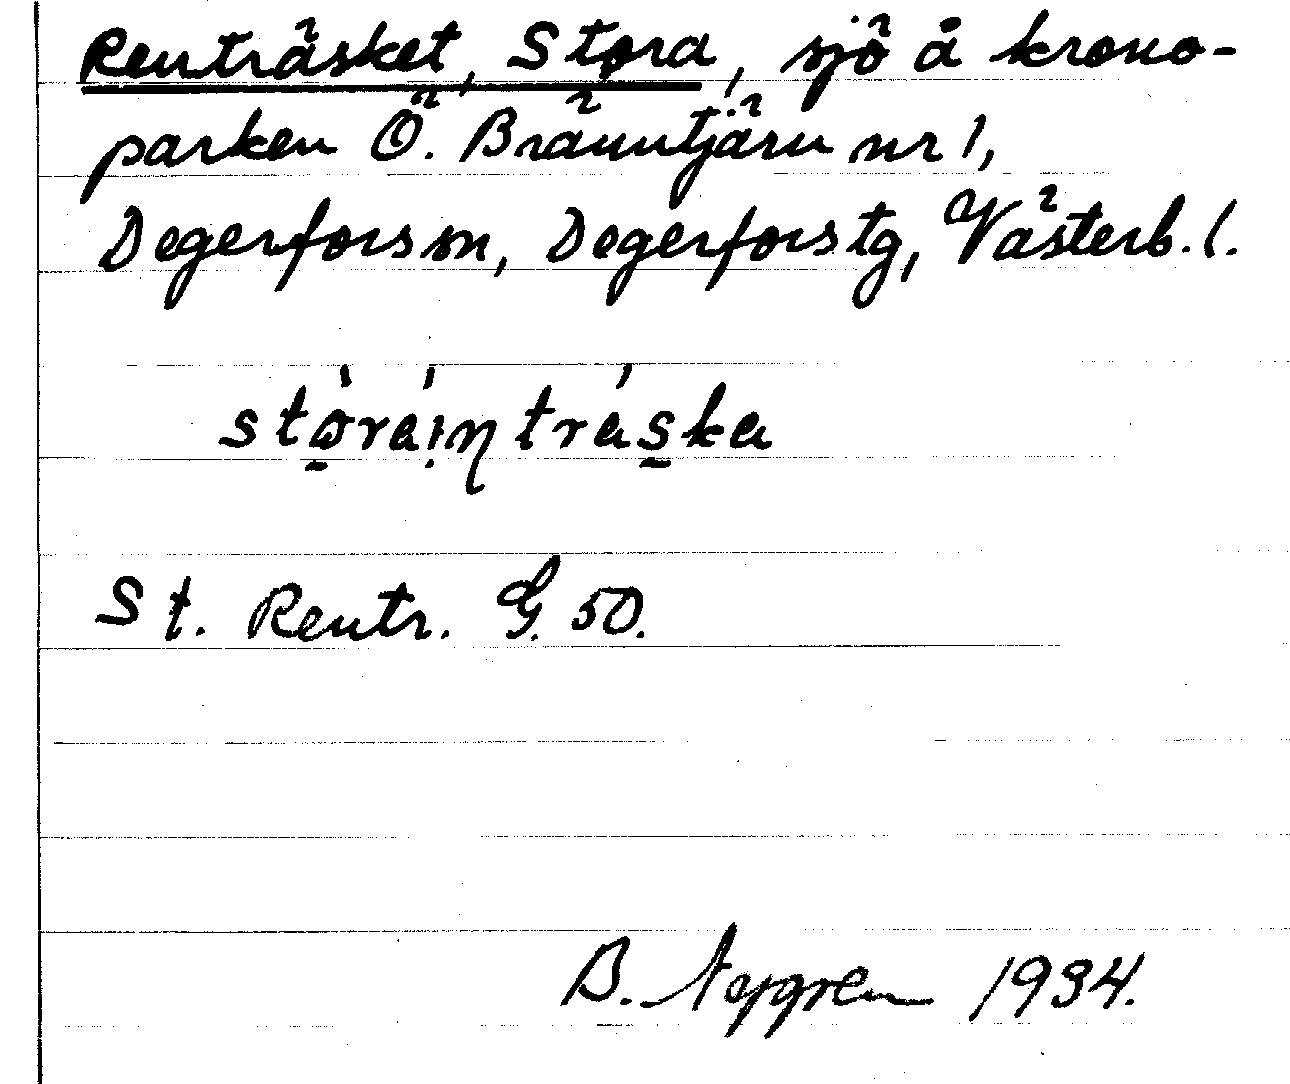 Renträsket, Stora, sjö å krono-
parken Ö. Bränntjärn nr 1,
Degerfors sn, Degerfors tg, Västerb. l.
stòráiŋ tráska
St. Rentr. G. 50.
B. 1934.